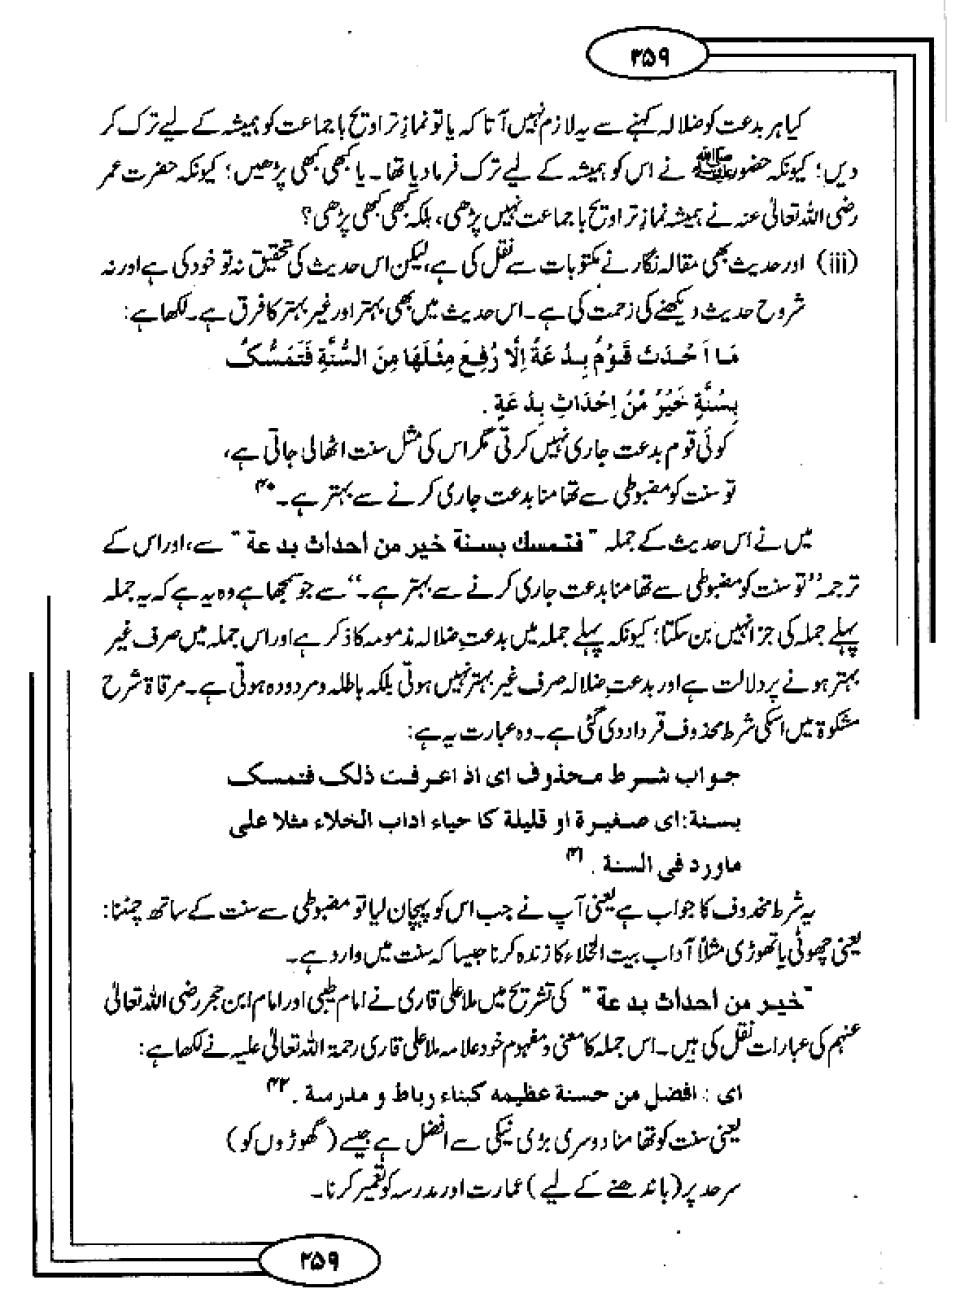 ۲۵۹
کیا ہر بدعت کو ضلالہ کہنے سے یہ لازم نہیں آتا کہ یا تو نمازِ تراویح با جماعت کو ہمیشہ کے لیے ترک کر
دیں؛ کیونکہ حضور ﷺ نے اس کو ہمیشہ کے لیے ترک فرما دیا تھا۔ یا کبھی کبھی پڑھیں؛ کیونکہ حضرت عمر
رضی اللہ تعالیٰ عنہ نے ہمیشہ نمازِ تراویح با جماعت نہیں پڑھی، بلکہ کبھی کبھی پڑھی؟
(iii) اور حدیث بھی مقالہ نگار نے مکتوبات سے نقل کی ہے، لیکن اس حدیث کی تحقیق نہ تو خود کی ہے اور نہ
شروح حدیث دیکھنے کی زحمت کی ہے۔ اس حدیث میں بھی بہتر اور غیر بہتر کا فرق ہے۔ لکھا ہے:
مَا اَحْدَثَ قَوْمٌ بِدْعَةً اِلَّا رُفِعَ مِثْلَهَا مِنَ السُّنَّةِ فَتَمَسُّكٌ
بِسُنَّةٍ خَيْرٌ مِّنْ اِحْدَاثِ بِدْعَةٍ .
کوئی قوم بدعت جاری نہیں کرتی مگر اس کی مثل سنت اٹھالی جاتی ہے،
تو سنت کو مضبوطی سے تھامنا بدعت جاری کرنے سے بہتر ہے۔ ۴۰
میں نے اس حدیث کے جملہ "فتمسك بسنة خير من احداث بدعة" سے، اور اس کے
ترجمہ ’’تو سنت کو مضبوطی سے تھامنا بدعت جاری کرنے سے بہتر ہے۔‘‘ سے جو سمجھا ہے وہ یہ ہے کہ یہ جملہ
پہلے جملہ کی جزا نہیں بن سکتا؛ کیونکہ پہلے جملہ میں بدعتِ ضلالہ مذمومہ کا ذکر ہے اور اس جملہ میں صرف غیر
بہتر ہونے پر دلالت ہے اور بدعتِ ضلالہ صرف غیر بہتر نہیں ہوتی بلکہ باطلہ و مردودہ ہوتی ہے۔ مرقاۃ شرح
مشکوۃ میں اسکی شرط محذوف قرار دی گئی ہے۔ وہ عبارت یہ ہے:
جواب شرط محذوف ای اذ اعرفت ذلک فتمسک
بسنة: ای صغیرة او قلیلة کا حیاء اداب الخلاء مثلا علی
ماورد فی السنة . ۴۱
یہ شرط محذوف کا جواب ہے یعنی آپ نے جب اس کو پہچان لیا تو مضبوطی سے سنت کے ساتھ چمٹنا:
یعنی چھوٹی یا تھوڑی مثلاً آداب بیت الخلاء کا زندہ کرنا جیسا کہ سنت میں وارد ہے۔
"خیر من احداث بدعة" کی تشریح میں ملا علی قاری نے امام طیبی اور امام ابن حجر رضی اللہ تعالیٰ
عنہم کی عبارات نقل کی ہیں۔ اس جملہ کا معنی و مفہوم خود علامہ ملا علی قاری رحمۃ اللہ تعالیٰ علیہ نے لکھا ہے:
ای : افضل من حسنة عظیمه کبناء رباط و مدرسة . ۴۲
یعنی سنت کو تھامنا دوسری بڑی نیکی سے افضل ہے جیسے (گھوڑوں کو)
سرحد پر (باندھنے کے لیے) عمارت اور مدرسہ کو تعمیر کرنا۔
۲۵۹